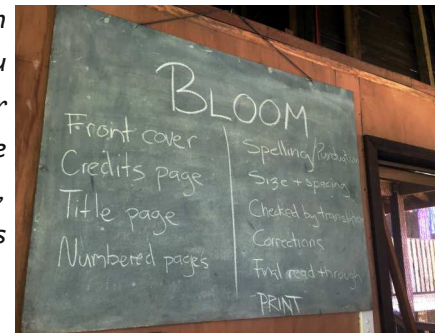 n
u
r
e
,
s
BLOOM
Front cover
Credits page
Title page
Numbered pages
Spelling/Punctuation
Size + spacing
Checked by translator
Corrections
Final read through
PRINT